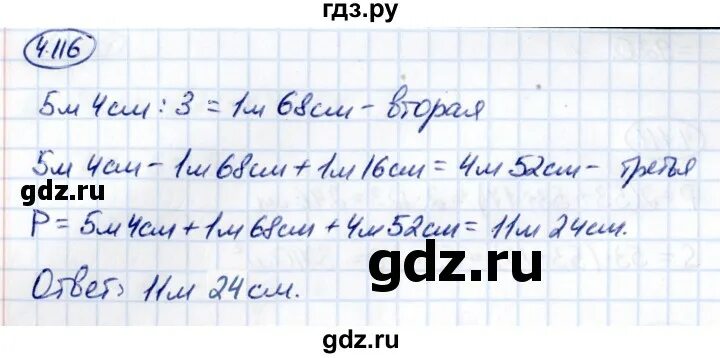 гдз.ру
4.116
5м 4см : 3 = 1м 68см - вторая
5м 4см - 1м 68см + 1м 16см = 4м 52см - третья
gdz.ru
P = 5м 4см + 1м 68см + 4м 52см = 11м 24см.
gdz.ru
Ответ: 11м 24см.
gdz.ru